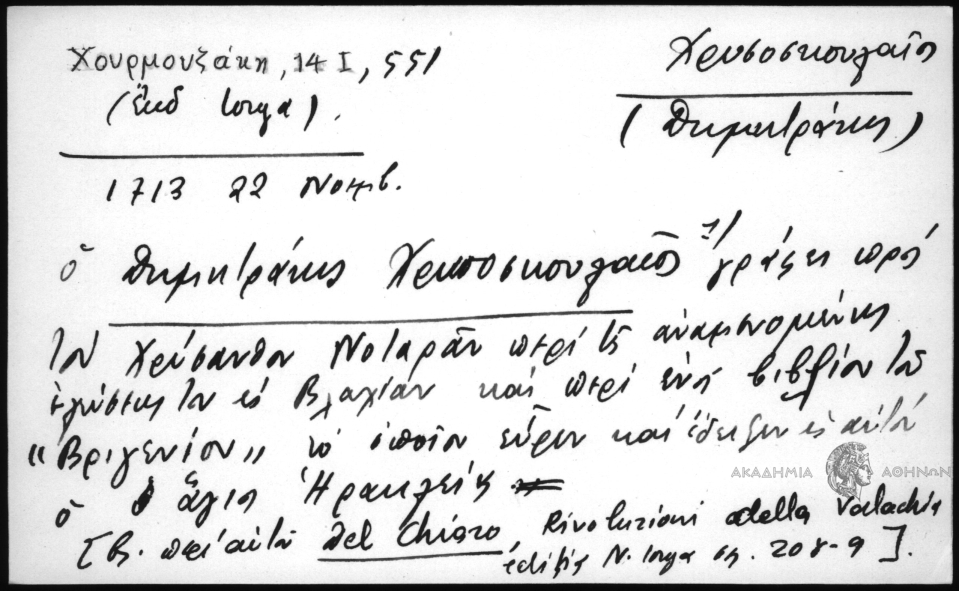 Χουρμουζάκη, 14 I, 551
(ἔκδ Iorga).
Χρυσοσκουλαῖος
(Δημητράκης)
1713 22 Νοεμβ.
ὁ Δημητράκης Χρυσοσκουλαῖος 1) γράφει πρὸς
τὸν Χρύσανθον Νοταρᾶν περὶ τῆς ἀναμενομένης
ἐλεύσεως του εἰς Βλαχίαν καὶ περὶ ἑνὸς βιβλίου τοῦ
"Βριγενίου" τὸ ὁποῖον εὗρεν καὶ ἔδειξεν εἰς αὐτὸν
ὁ ἅγιος Ἡρακλείας
[βλ. περὶ αὐτοῦ Del Chiaro, Rivoluzioni della Valachia
ἔκδοσις N. Iorga σελ. 208-9].
ΑΚΑΔΗΜΙΑ ΑΘΗΝΩΝ